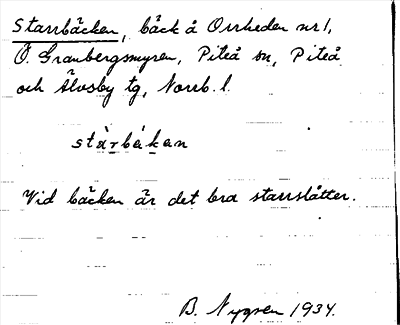 Starrbäcken, bäck å Orrheden nr 1,
Ö. Granbergsmyren, Piteå sn, Piteå
och Älvsby tg, Norrb. l.
stàrbákan
Vid bäcken är det bra starrslåtter.
B. Nygren 1934.